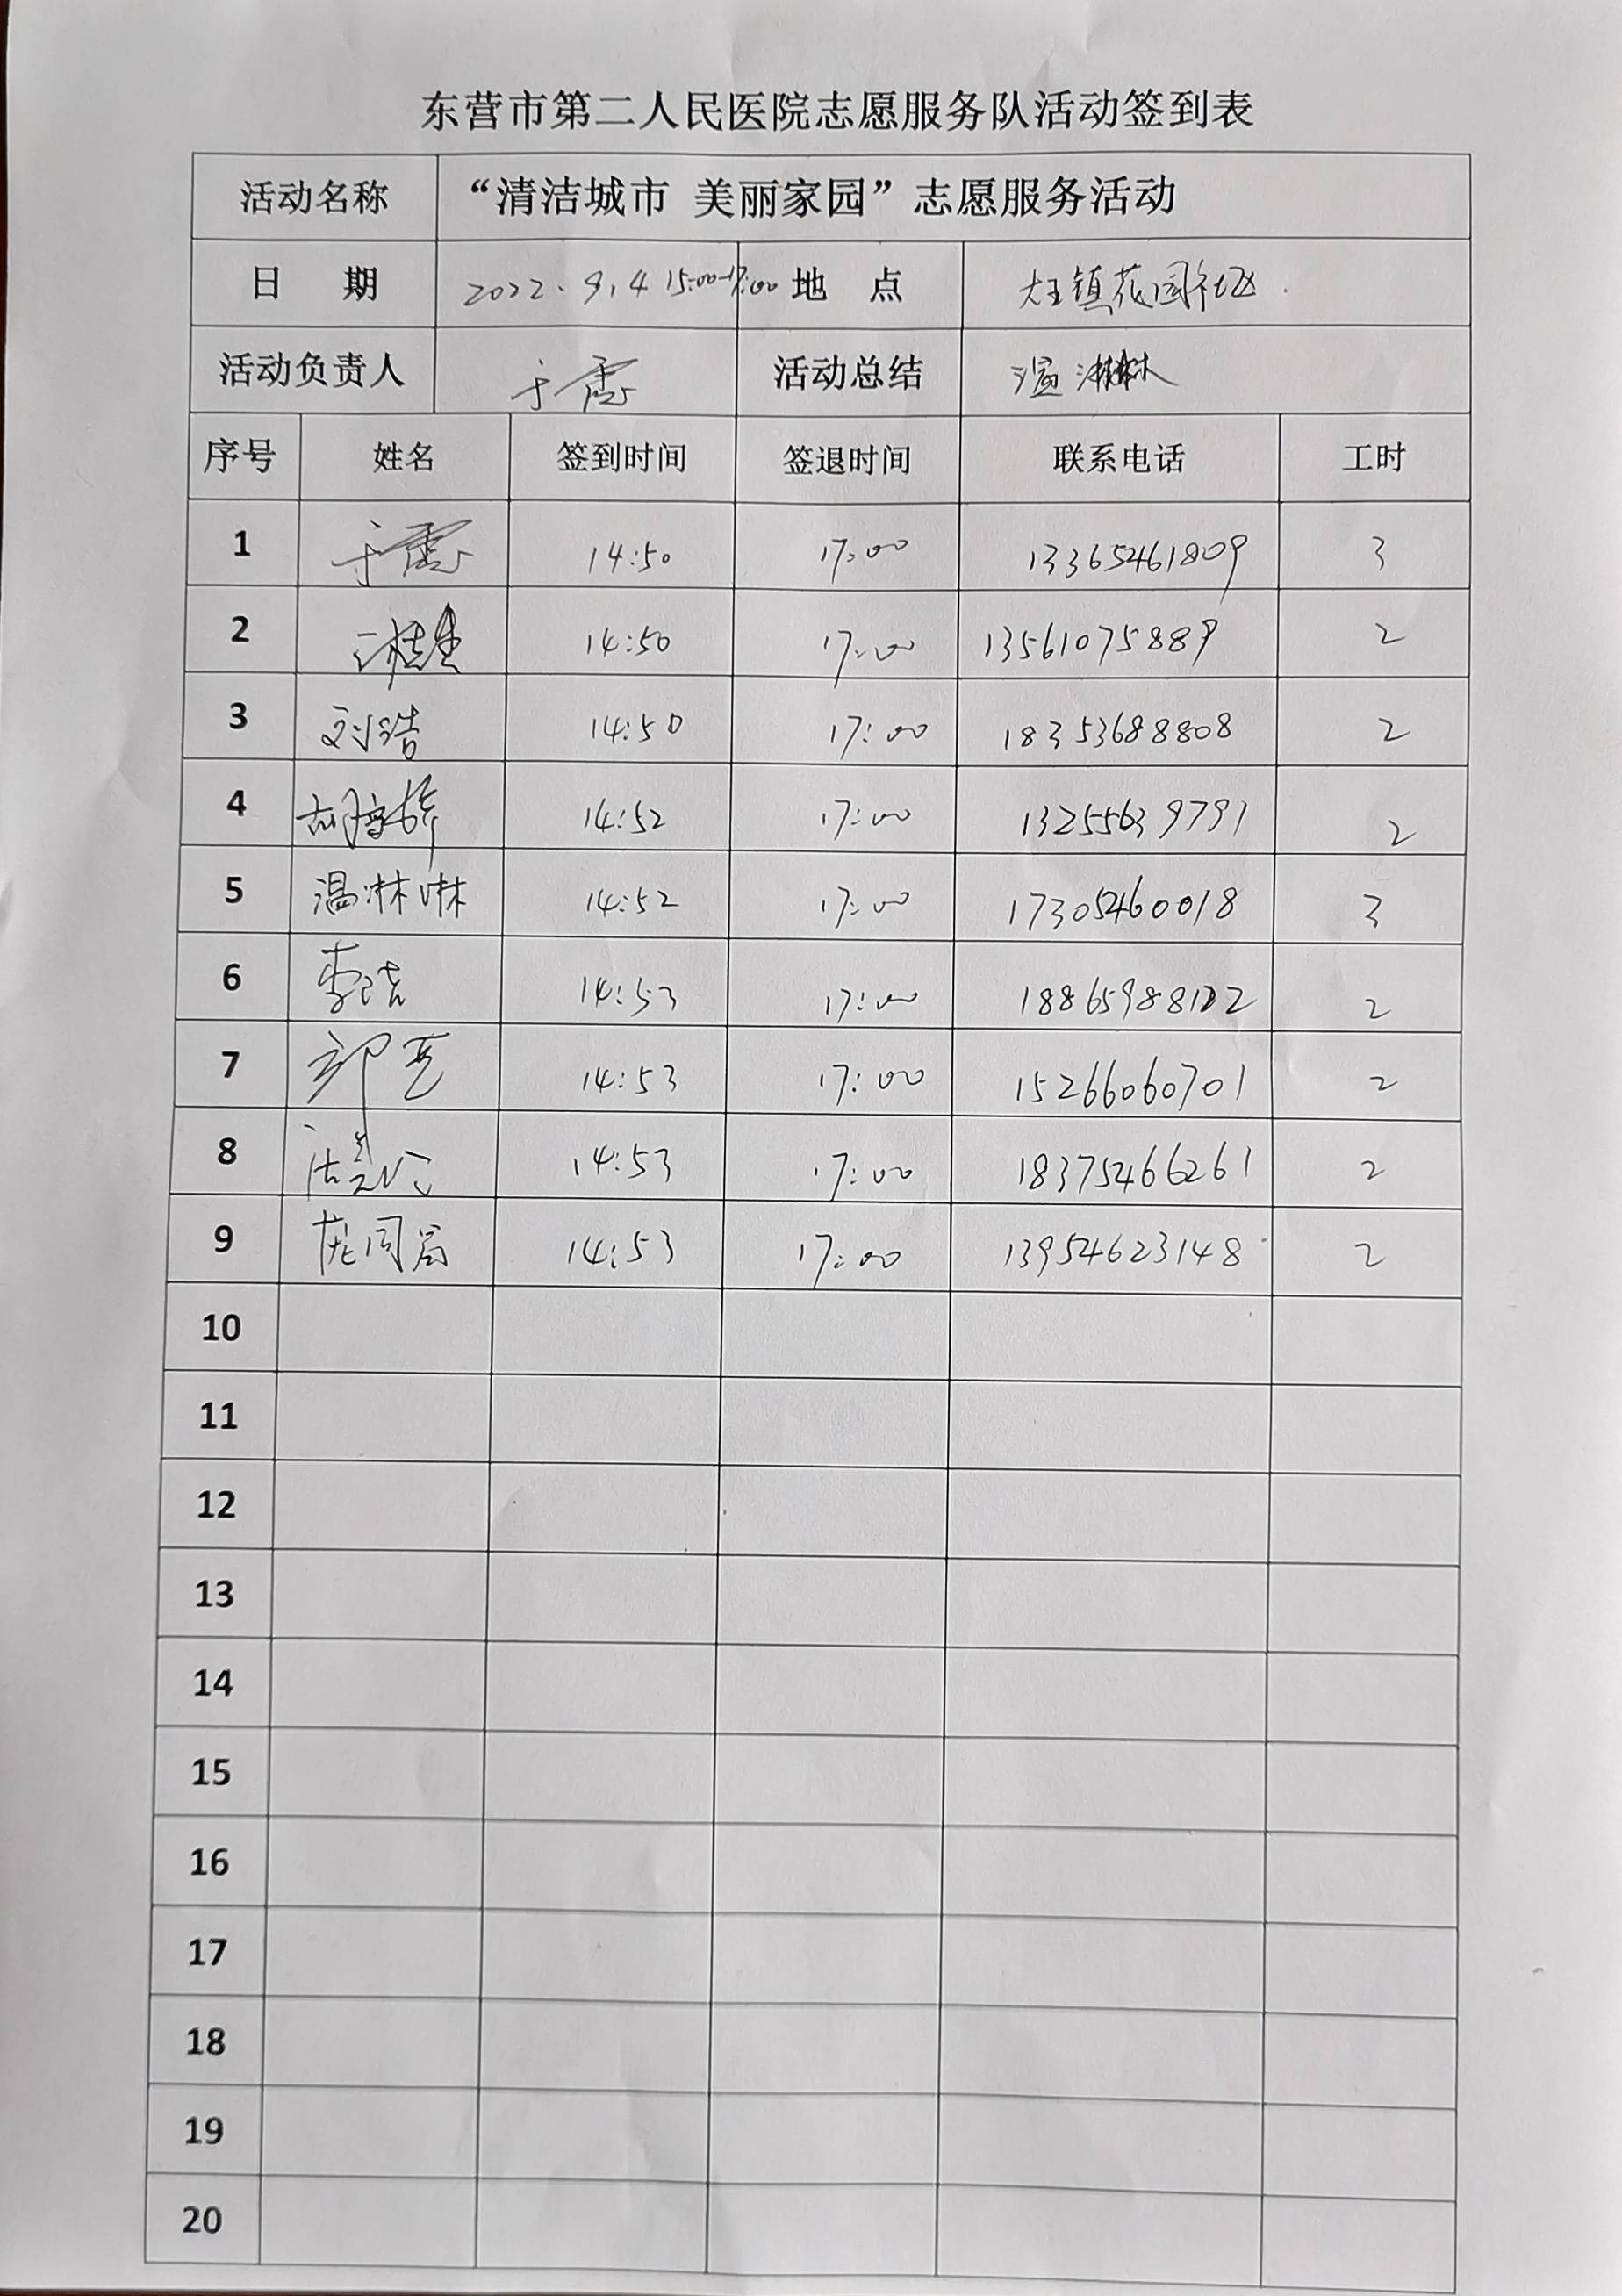 东营市第二人民医院志愿服务队活动签到表
活动名称 “清洁城市 美丽家园”志愿服务活动
日 期 2022.9.4 15:00-17:00 地 点 大王镇花园社区.
活动负责人 于霞 活动总结 温淋淋
序号 姓名 签到时间 签退时间 联系电话 工时
1 于霞 14:50 17:00 13365461809 3
2 14:50 17:00 13561075889 2
3 刘浩 14:50 17:00 18353688808 2
4 14:52 17:00 13255639791 2
5 温淋淋 14:52 17:00 17305460018 3
6 14:53 17:00 2
7 14:53 17:00 15266060701 2
8 14:53 17:00 18375466261 2
9 14:53 17:00 13954623148 2
10
11
12
13
14
15
16
17
18
19
20